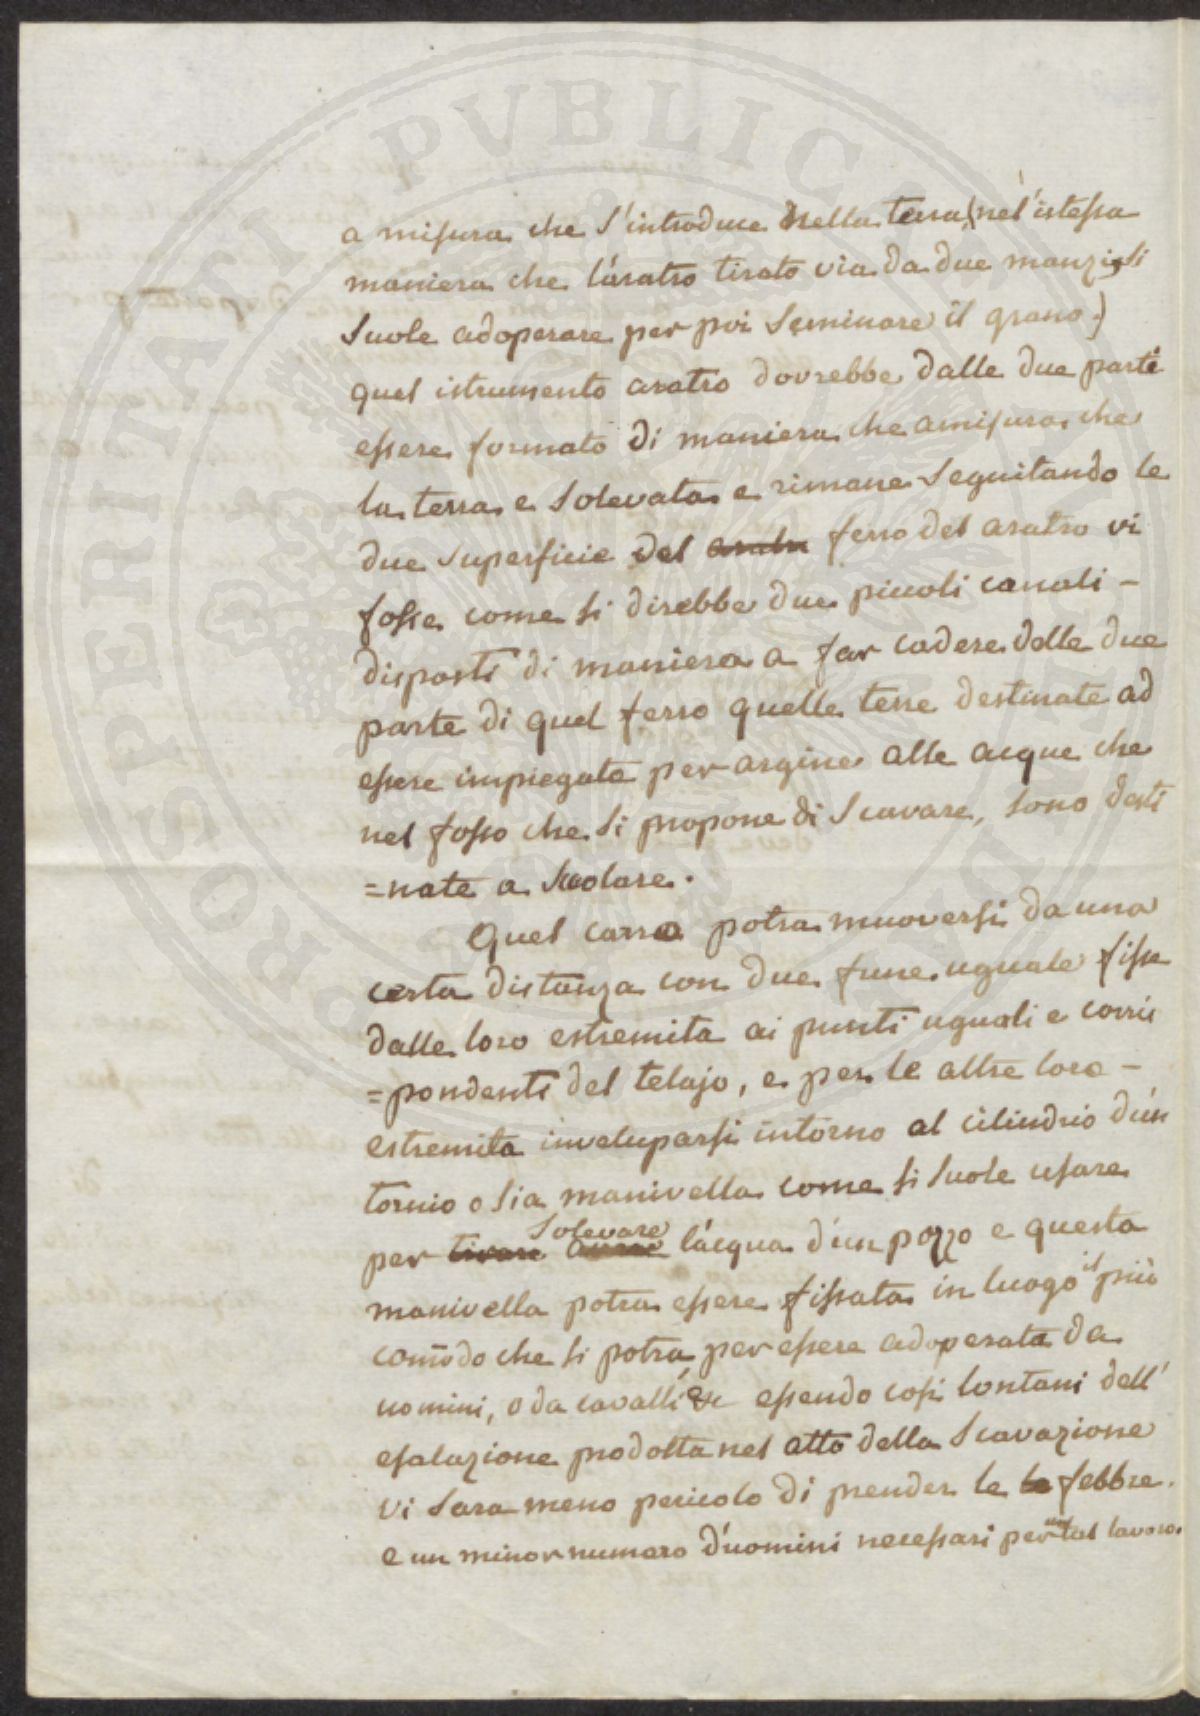 a misura che s'introduce nella terra, (nel'istessa
maniera che l'aratro tirato via da due manzi si
suole adoperare per poi seminare il grano.)
quel istrumento aratro dovrebbe dalle due parte
essere formato di maniera che amisura che
la terra e solevata e rimane seguitando le
due superficie del aratro ferro del aratro vi
fosse come si direbbe due piccoli canali -
disposti di maniera a far cadere dalle due
parte di quel ferro quelle terre destinate ad
essere impiegate per argine alle acque che
nel fosso che si propone di scavare, sono desti
=nate a scolare.
Quel carro potra muoversi da una
certa distanza con due fune uguale fisse
dalle loro estremita ai punti uguali e corris
=pondenti del telajo, e per le altre loro -
estremita inveluparsi intorno al cilindrio d'un
tornio o sia manivella come si suole usare
per tirare solevare l'acqua d'un pozzo e questa
manivella potra essere fissata in luogo il più
com̄odo che si potra per essere adoperata da
uomini, o da cavalli &c essendo cosi lontani dell'
esalazione prodotta nel atto della scavazione
vi sara meno pericolo di prender le le febbre.
e un minor numero d'uomini necessari per tal lavoro.
PROSPERITATI PUBLICAE